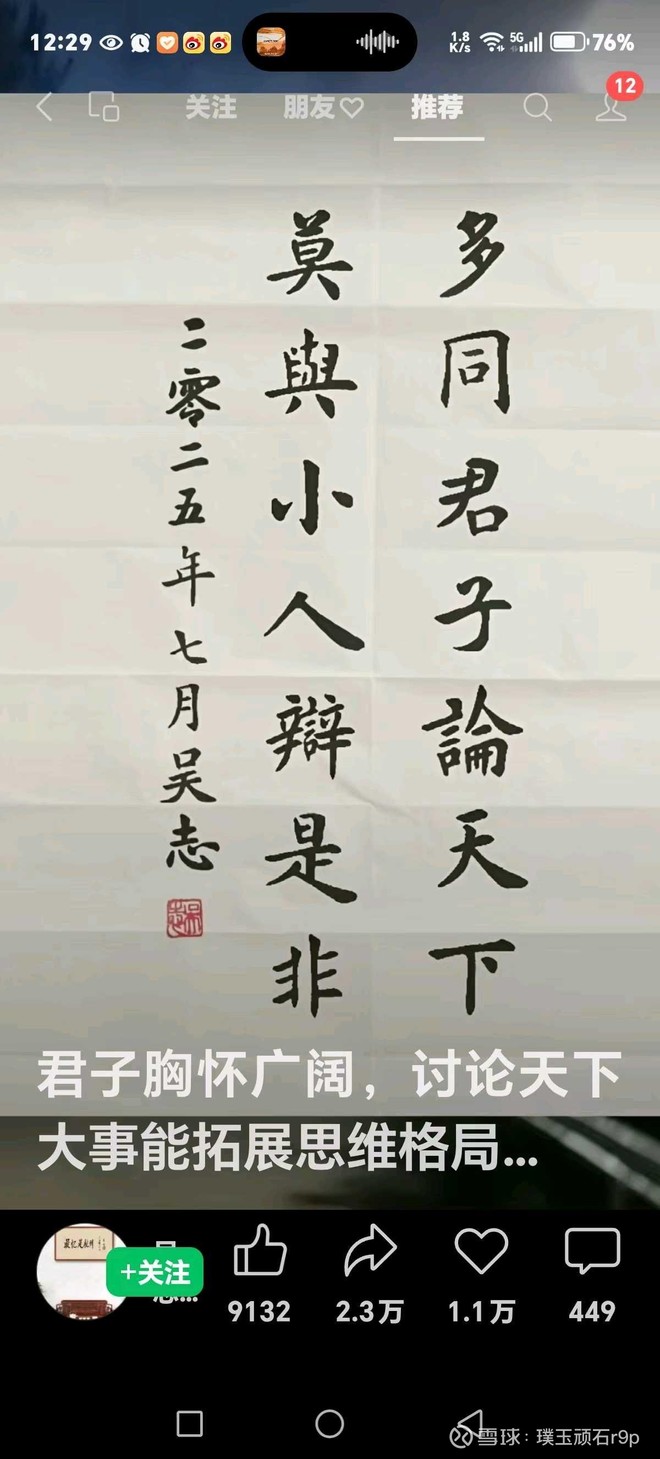 12:29
1.8 K/s
5G
76%
关注
朋友
推荐
12
多同君子論天下
莫與小人辯是非
二零二五年七月吴志
吴志
君子胸怀广阔，讨论天下
大事能拓展思维格局...
+关注
9132
2.3万
1.1万
449
雪球：璞玉顽石r9p